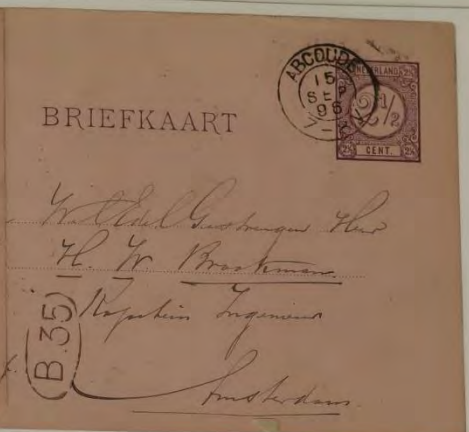 ABCOUDE
15
SEP
96
NEDERLAND
2½
CENT.
BRIEFKAART
Heer
H. W. Brookman
Kapitein Ingenieur
Amsterdam.
B.35